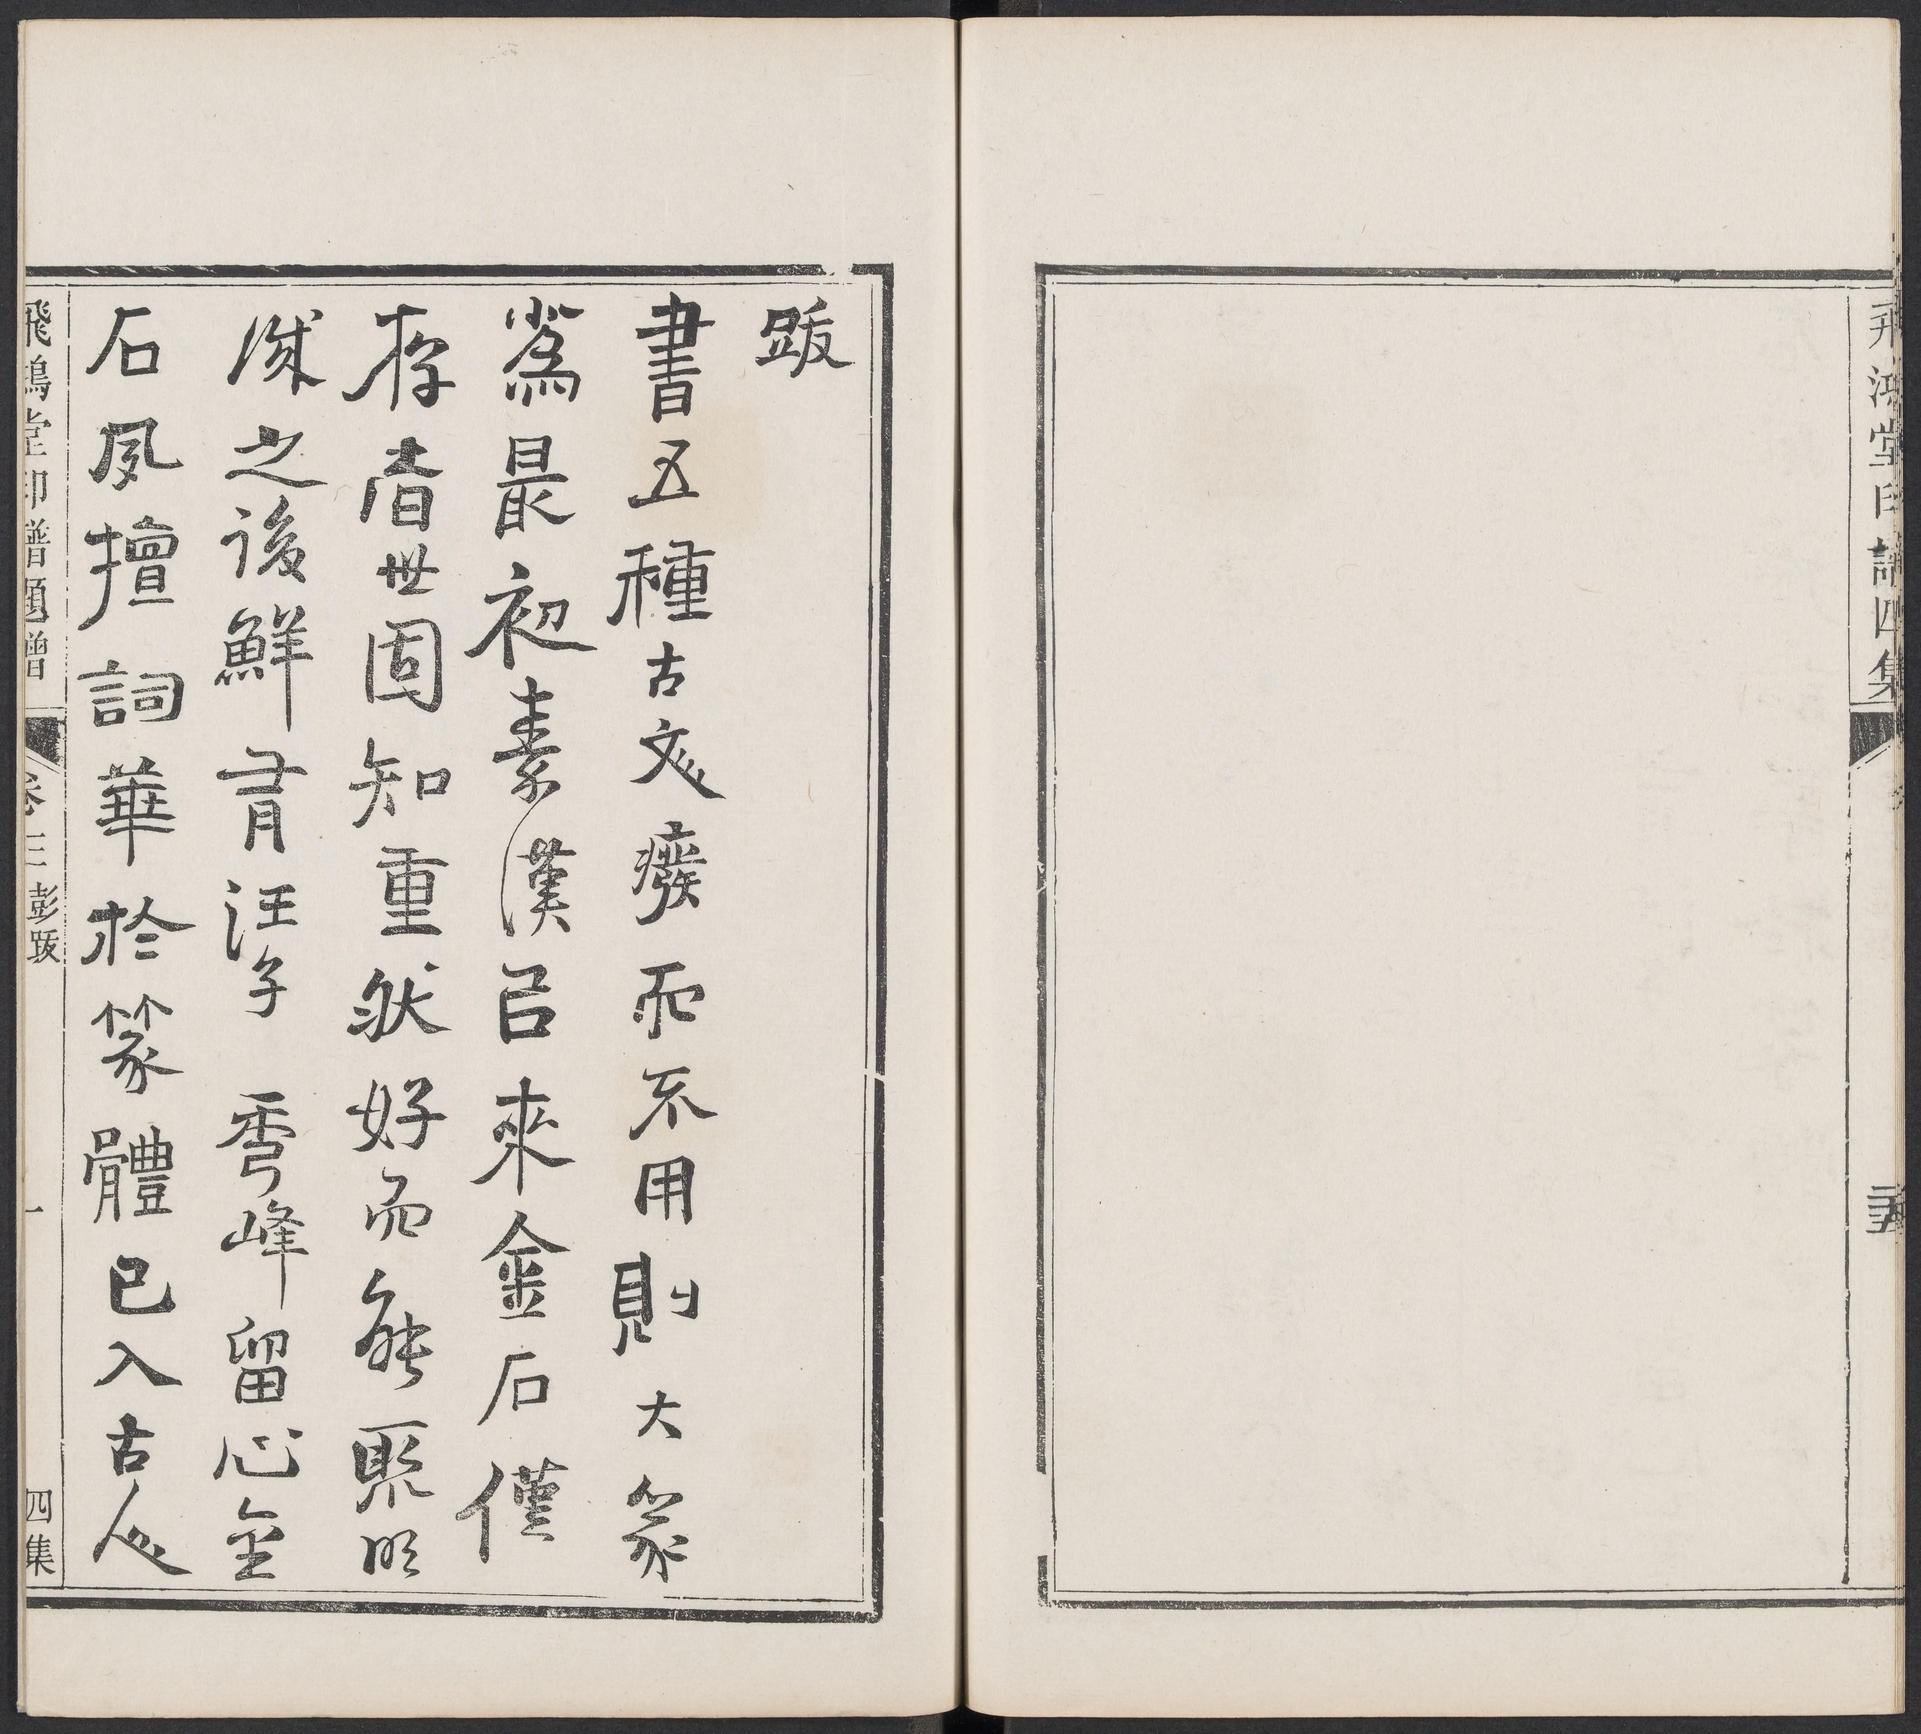 飛鴻堂印譜四集
跋
書五種古文癈而不用則大篆
為最初秦漢㠯來金石僅
存者世固知重然好而能聚明
誠之後鮮有汪子秀峰留心金
石夙擅詞華於篆體已入古人
飛鴻堂印譜題贈 卷三 彭跋 一 四集